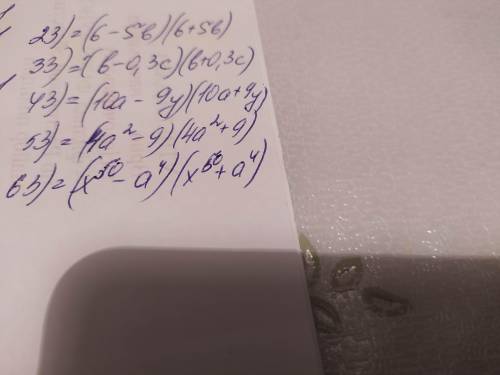 23) = (6 - 5b)(6 + 5b)
33) = (b - 0,3c)(b + 0,3c)
43) = (10a - 9y)(10a + 9y)
53) = (4a² - 9)(4a² + 9)
63) = (x⁵⁰ - a⁴)(x⁵⁰ + a⁴)